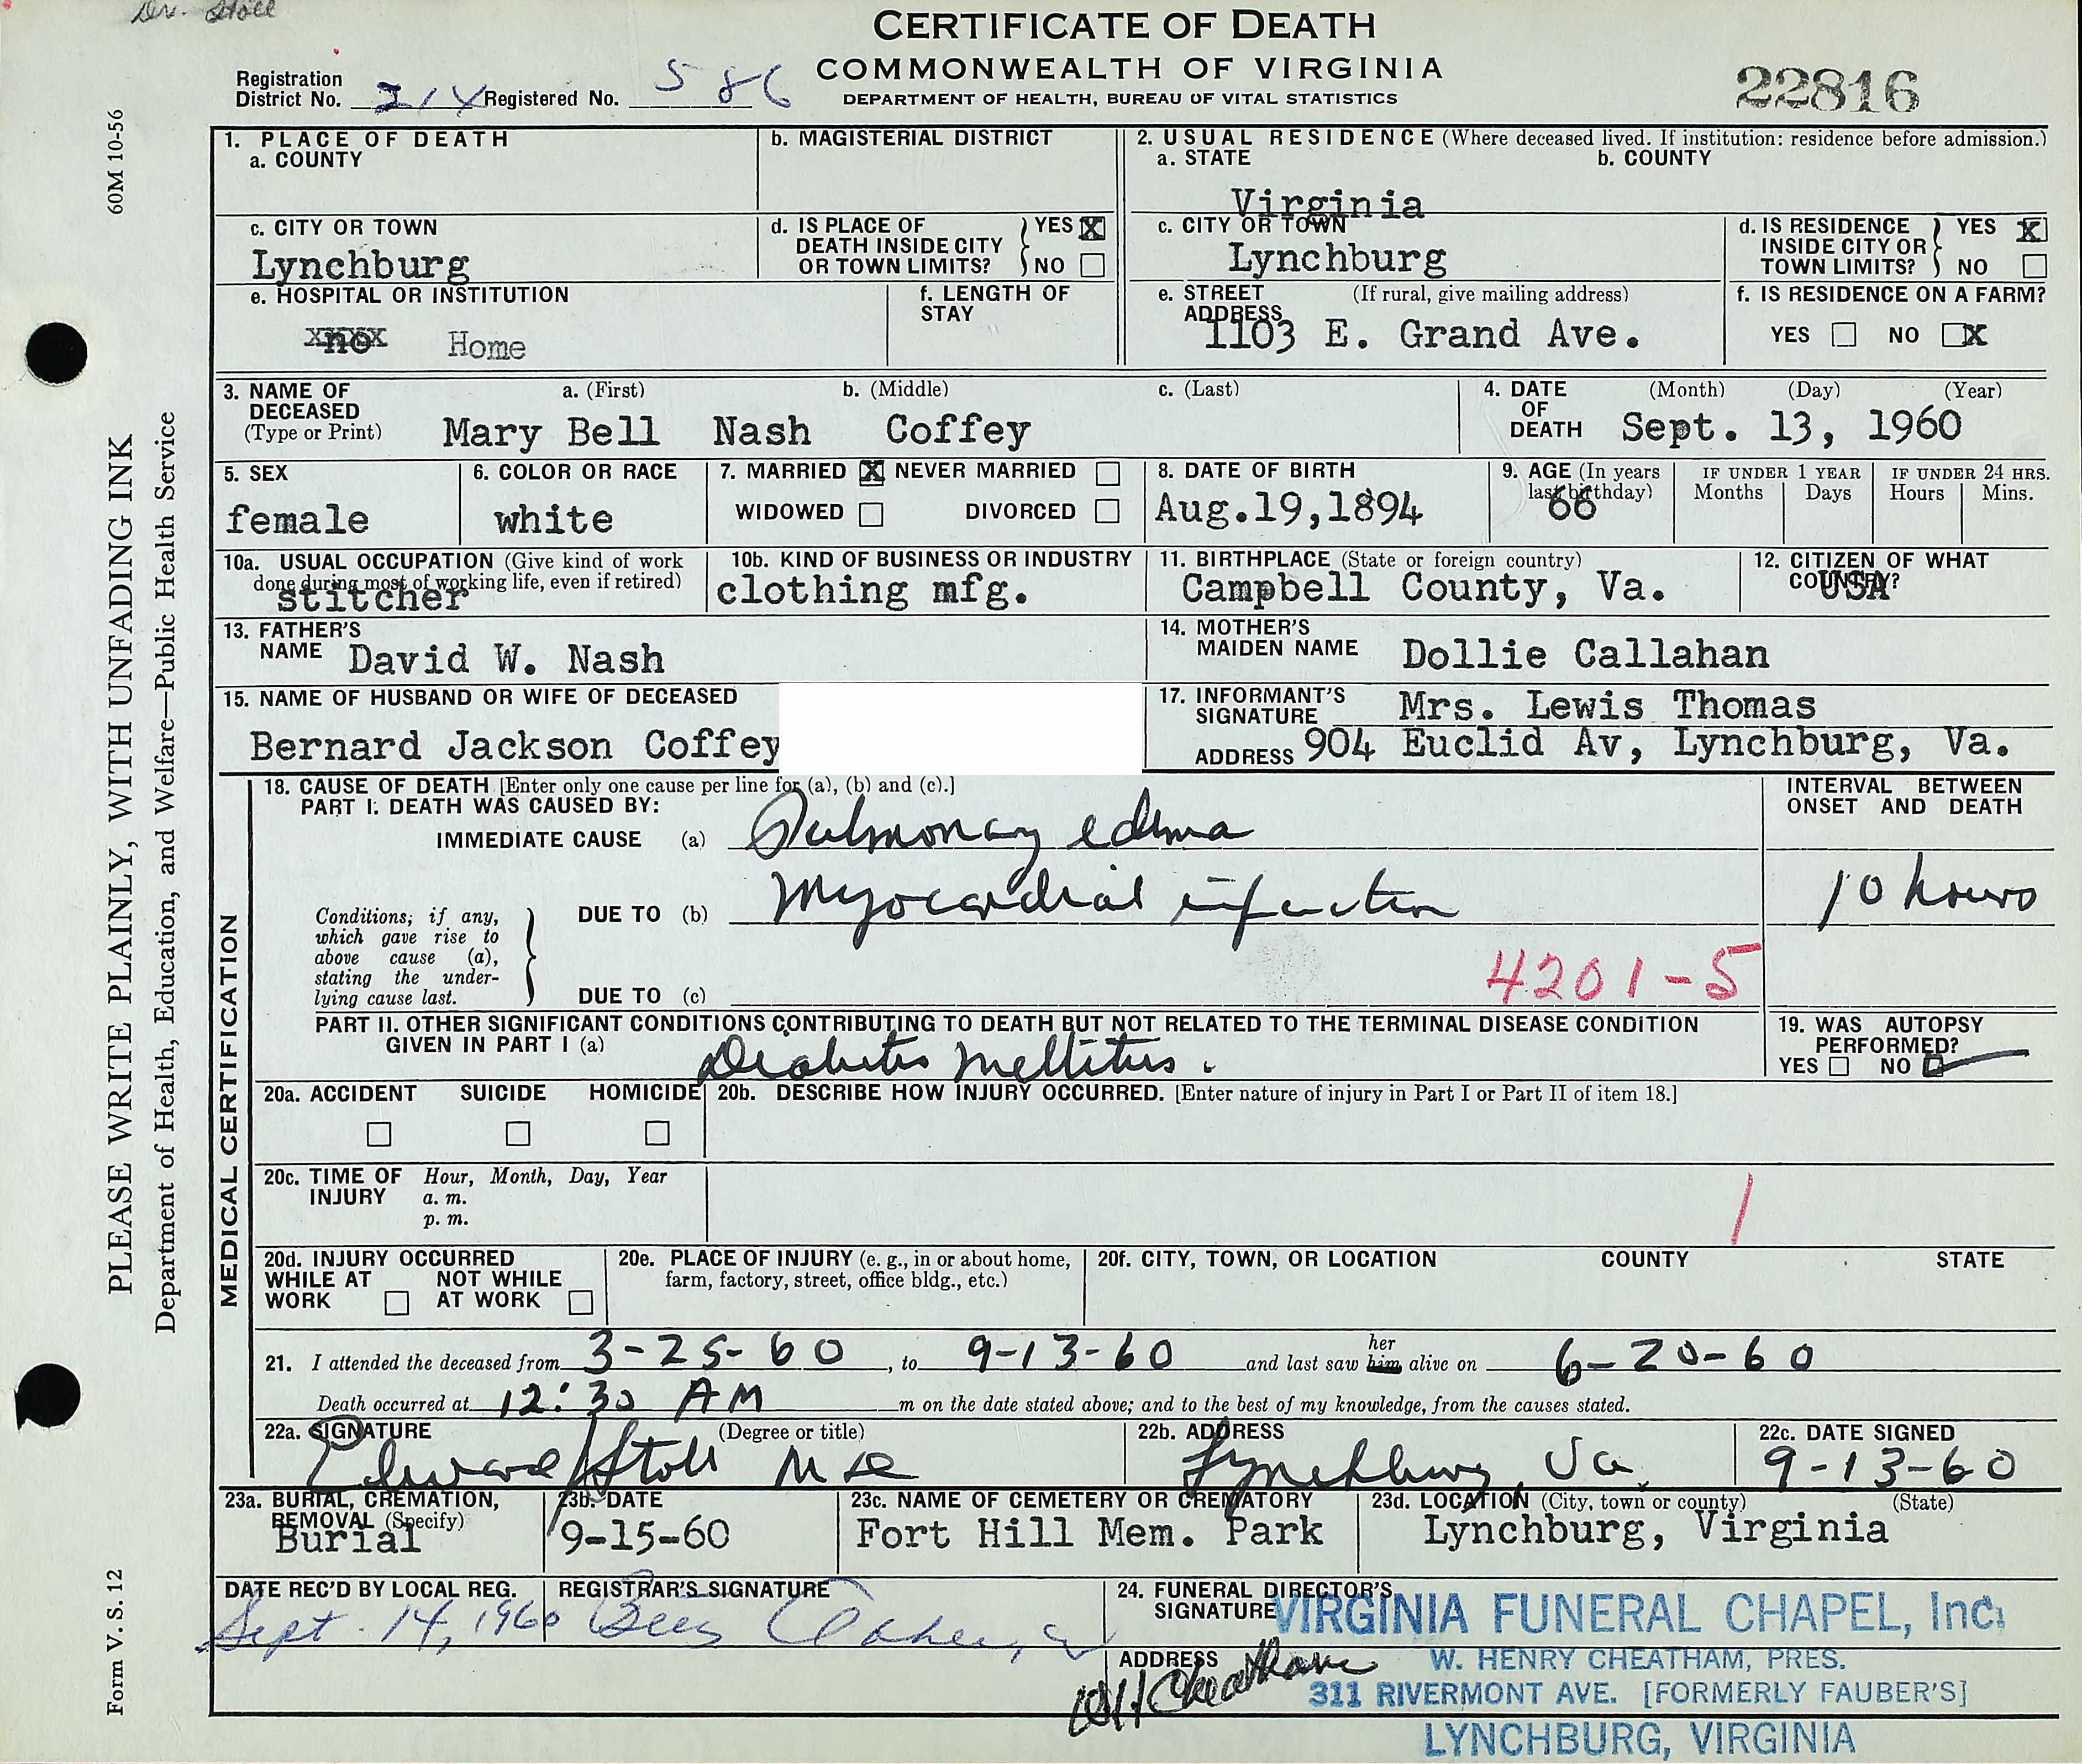 Dr. Stoll
CERTIFICATE OF DEATH
COMMONWEALTH OF VIRGINIA
DEPARTMENT OF HEALTH, BUREAU OF VITAL STATISTICS
22816
Registration District No. Registered No. 586
60M 10-56
PLEASE WRITE PLAINLY, WITH UNFADING INK
Department of Health, Education, and Welfare—Public Health Service
Form V. S. 12
1. PLACE OF DEATH
a. COUNTY
b. MAGISTERIAL DISTRICT
2. USUAL RESIDENCE (Where deceased lived. If institution: residence before admission.)
a. STATE b. COUNTY
Virginia
c. CITY OR TOWN
Lynchburg
d. IS PLACE OF DEATH INSIDE CITY OR TOWN LIMITS? YES X NO
c. CITY OR TOWN
Lynchburg
d. IS RESIDENCE INSIDE CITY OR TOWN LIMITS? YES X NO
e. HOSPITAL OR INSTITUTION
no Home
f. LENGTH OF STAY
e. STREET ADDRESS (If rural, give mailing address)
1103 E. Grand Ave.
f. IS RESIDENCE ON A FARM?
YES NO X
3. NAME OF DECEASED (Type or Print)
a. (First) b. (Middle) c. (Last)
Mary Bell Nash Coffey
4. DATE OF DEATH (Month) (Day) (Year)
Sept. 13, 1960
5. SEX
female
6. COLOR OR RACE
white
7. MARRIED X NEVER MARRIED
WIDOWED DIVORCED
8. DATE OF BIRTH
Aug.19,1894
9. AGE (In years last birthday)
66
IF UNDER 1 YEAR
Months Days
IF UNDER 24 HRS.
Hours Mins.
10a. USUAL OCCUPATION (Give kind of work done during most of working life, even if retired)
stitcher
10b. KIND OF BUSINESS OR INDUSTRY
clothing mfg.
11. BIRTHPLACE (State or foreign country)
Campbell County, Va.
12. CITIZEN OF WHAT COUNTRY?
USA
13. FATHER'S NAME David W. Nash
14. MOTHER'S MAIDEN NAME Dollie Callahan
15. NAME OF HUSBAND OR WIFE OF DECEASED
Bernard Jackson Coffey
17. INFORMANT'S SIGNATURE Mrs. Lewis Thomas
ADDRESS 904 Euclid Av, Lynchburg, Va.
MEDICAL CERTIFICATION
18. CAUSE OF DEATH [Enter only one cause per line for (a), (b) and (c).]
PART I. DEATH WAS CAUSED BY:
INTERVAL BETWEEN ONSET AND DEATH
IMMEDIATE CAUSE (a) Pulmonary edema
Conditions, if any, which gave rise to above cause (a), stating the underlying cause last.
DUE TO (b) Myocardial infarction
10 hours
DUE TO (c)
4201-5
PART II. OTHER SIGNIFICANT CONDITIONS CONTRIBUTING TO DEATH BUT NOT RELATED TO THE TERMINAL DISEASE CONDITION GIVEN IN PART I (a)
Diabetes Mellitus.
19. WAS AUTOPSY PERFORMED?
YES NO
20a. ACCIDENT SUICIDE HOMICIDE
20b. DESCRIBE HOW INJURY OCCURRED. [Enter nature of injury in Part I or Part II of item 18.]
20c. TIME OF INJURY Hour, Month, Day, Year
a. m.
p. m.
1
20d. INJURY OCCURRED
WHILE AT WORK NOT WHILE AT WORK
20e. PLACE OF INJURY (e. g., in or about home, farm, factory, street, office bldg., etc.)
20f. CITY, TOWN, OR LOCATION COUNTY STATE
21. I attended the deceased from 3-25-60, to 9-13-60 and last saw him her alive on 6-20-60
Death occurred at 12:30 AM m on the date stated above; and to the best of my knowledge, from the causes stated.
22a. SIGNATURE (Degree or title)
Edward Stoll MD
22b. ADDRESS
Lynchburg, Va.
22c. DATE SIGNED
9-13-60
23a. BURIAL, CREMATION, REMOVAL (Specify)
Burial
23b. DATE
9-15-60
23c. NAME OF CEMETERY OR CREMATORY
Fort Hill Mem. Park
23d. LOCATION (City, town or county) (State)
Lynchburg, Virginia
DATE REC'D BY LOCAL REG.
Sept. 14, 1960
REGISTRAR'S SIGNATURE
24. FUNERAL DIRECTOR'S SIGNATURE
VIRGINIA FUNERAL CHAPEL, Inc.
ADDRESS
W H Cheatham
W. HENRY CHEATHAM, PRES.
311 RIVERMONT AVE. [FORMERLY FAUBER'S]
LYNCHBURG, VIRGINIA